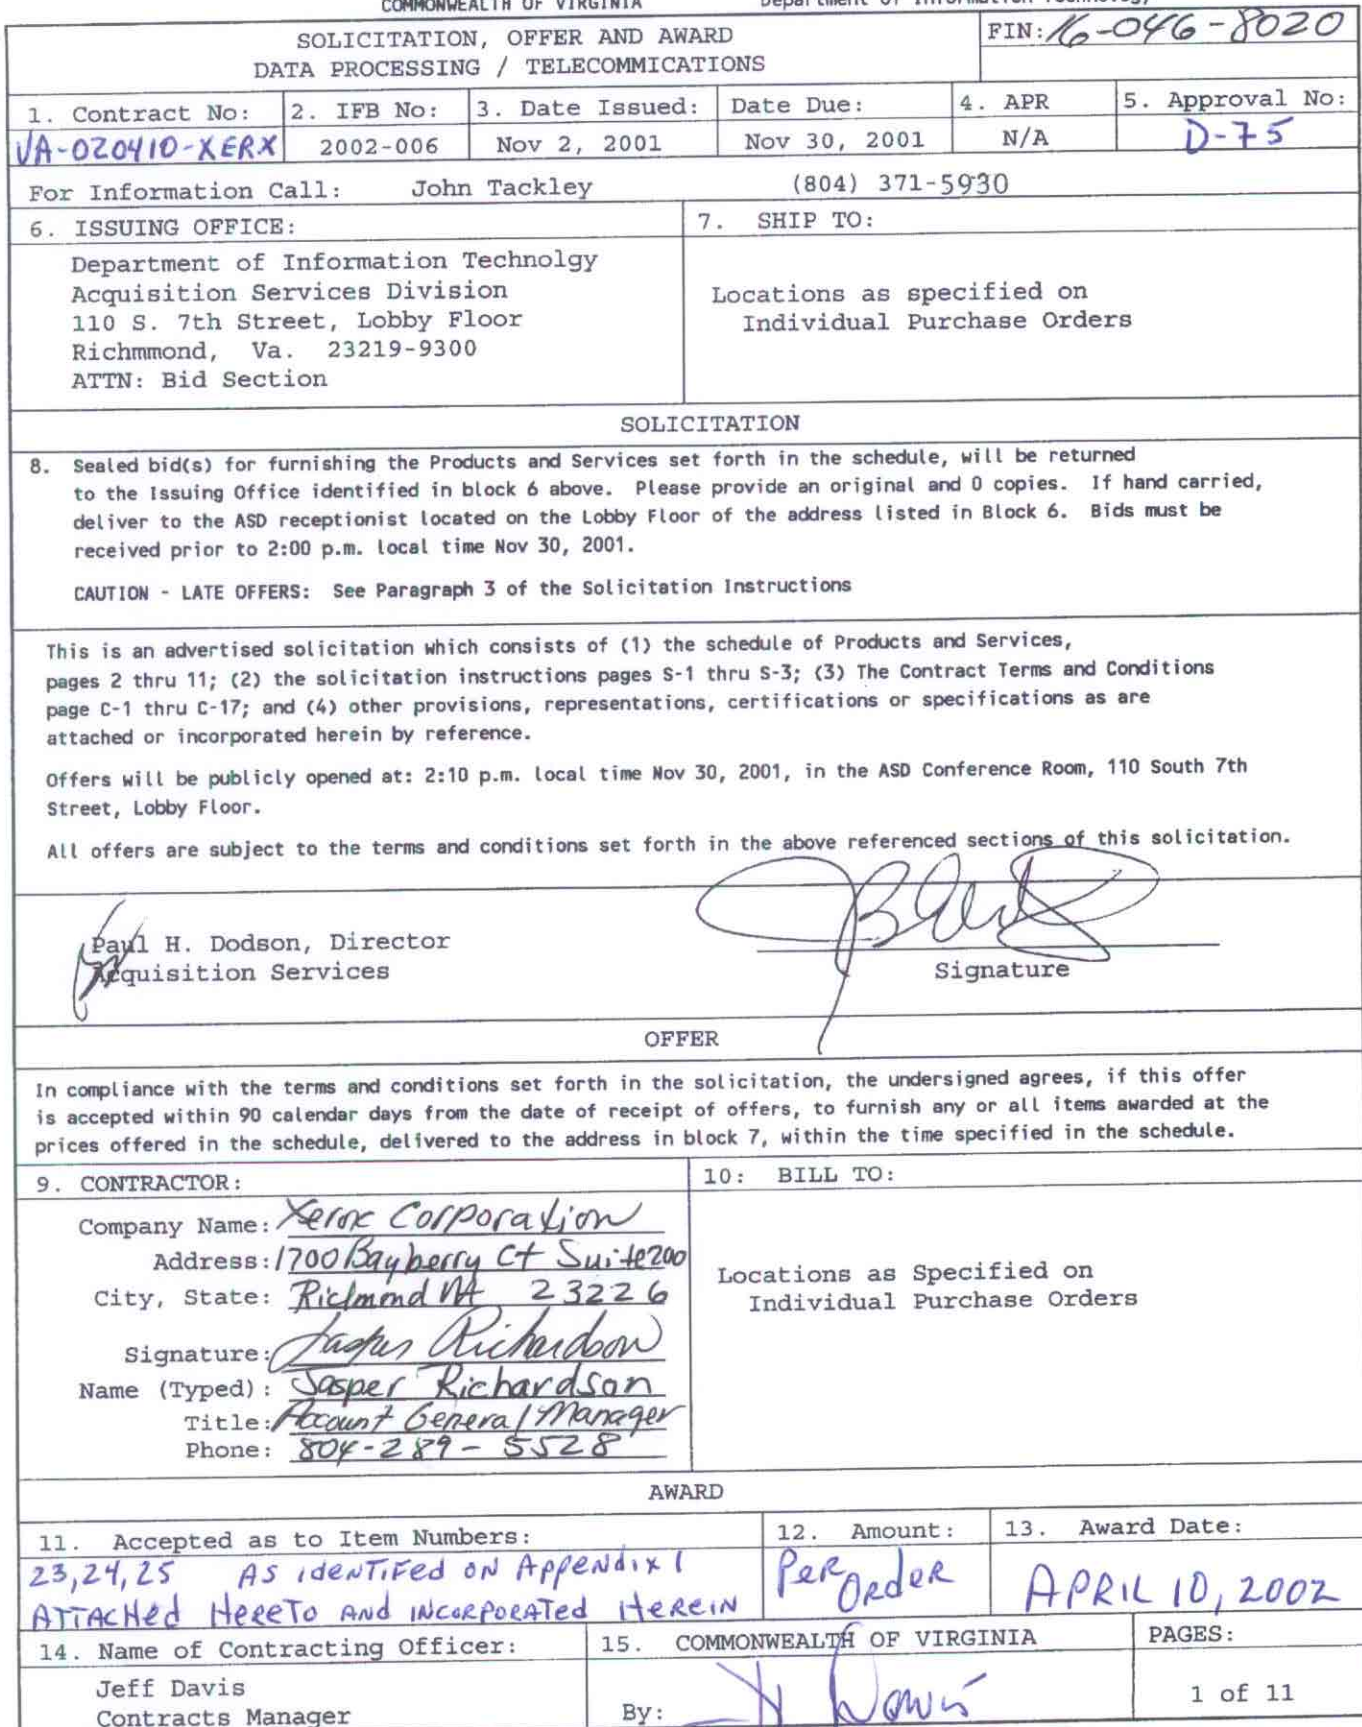 COMMONWEALTH OF VIRGINIA Department of Information Technology
SOLICITATION, OFFER AND AWARD
DATA PROCESSING / TELECOMMICATIONS
FIN: 16-046-8020
1. Contract No: 2. IFB No: 3. Date Issued: Date Due: 4. APR 5. Approval No:
VA-020410-XERX 2002-006 Nov 2, 2001 Nov 30, 2001 N/A D-75
For Information Call: John Tackley (804) 371-5930
6. ISSUING OFFICE: 7. SHIP TO:
Department of Information Technolgy
Acquisition Services Division
110 S. 7th Street, Lobby Floor
Richmmond, Va. 23219-9300
ATTN: Bid Section
Locations as specified on
Individual Purchase Orders
SOLICITATION
8. Sealed bid(s) for furnishing the Products and Services set forth in the schedule, will be returned
to the Issuing Office identified in block 6 above. Please provide an original and 0 copies. If hand carried,
deliver to the ASD receptionist located on the Lobby Floor of the address listed in Block 6. Bids must be
received prior to 2:00 p.m. local time Nov 30, 2001.
CAUTION - LATE OFFERS: See Paragraph 3 of the Solicitation Instructions
This is an advertised solicitation which consists of (1) the schedule of Products and Services,
pages 2 thru 11; (2) the solicitation instructions pages S-1 thru S-3; (3) The Contract Terms and Conditions
page C-1 thru C-17; and (4) other provisions, representations, certifications or specifications as are
attached or incorporated herein by reference.
Offers will be publicly opened at: 2:10 p.m. local time Nov 30, 2001, in the ASD Conference Room, 110 South 7th
Street, Lobby Floor.
All offers are subject to the terms and conditions set forth in the above referenced sections of this solicitation.
Paul H. Dodson, Director
Acquisition Services
Signature
OFFER
In compliance with the terms and conditions set forth in the solicitation, the undersigned agrees, if this offer
is accepted within 90 calendar days from the date of receipt of offers, to furnish any or all items awarded at the
prices offered in the schedule, delivered to the address in block 7, within the time specified in the schedule.
9. CONTRACTOR: 10: BILL TO:
Company Name: Xerox Corporation
Address: 1700 Bayberry Ct Suite 200
City, State: Richmond VA 23226
Signature: Jasper Richardson
Name (Typed): Jasper Richardson
Title: Account General Manager
Phone: 804-289-5528
Locations as Specified on
Individual Purchase Orders
AWARD
11. Accepted as to Item Numbers: 12. Amount: 13. Award Date:
23,24,25 AS identified on Appendix 1
ATTACHed HereTo AND INCORPORATed HereIN
Per Order
APRIL 10, 2002
14. Name of Contracting Officer: 15. COMMONWEALTH OF VIRGINIA PAGES:
Jeff Davis
Contracts Manager
By: 1 of 11